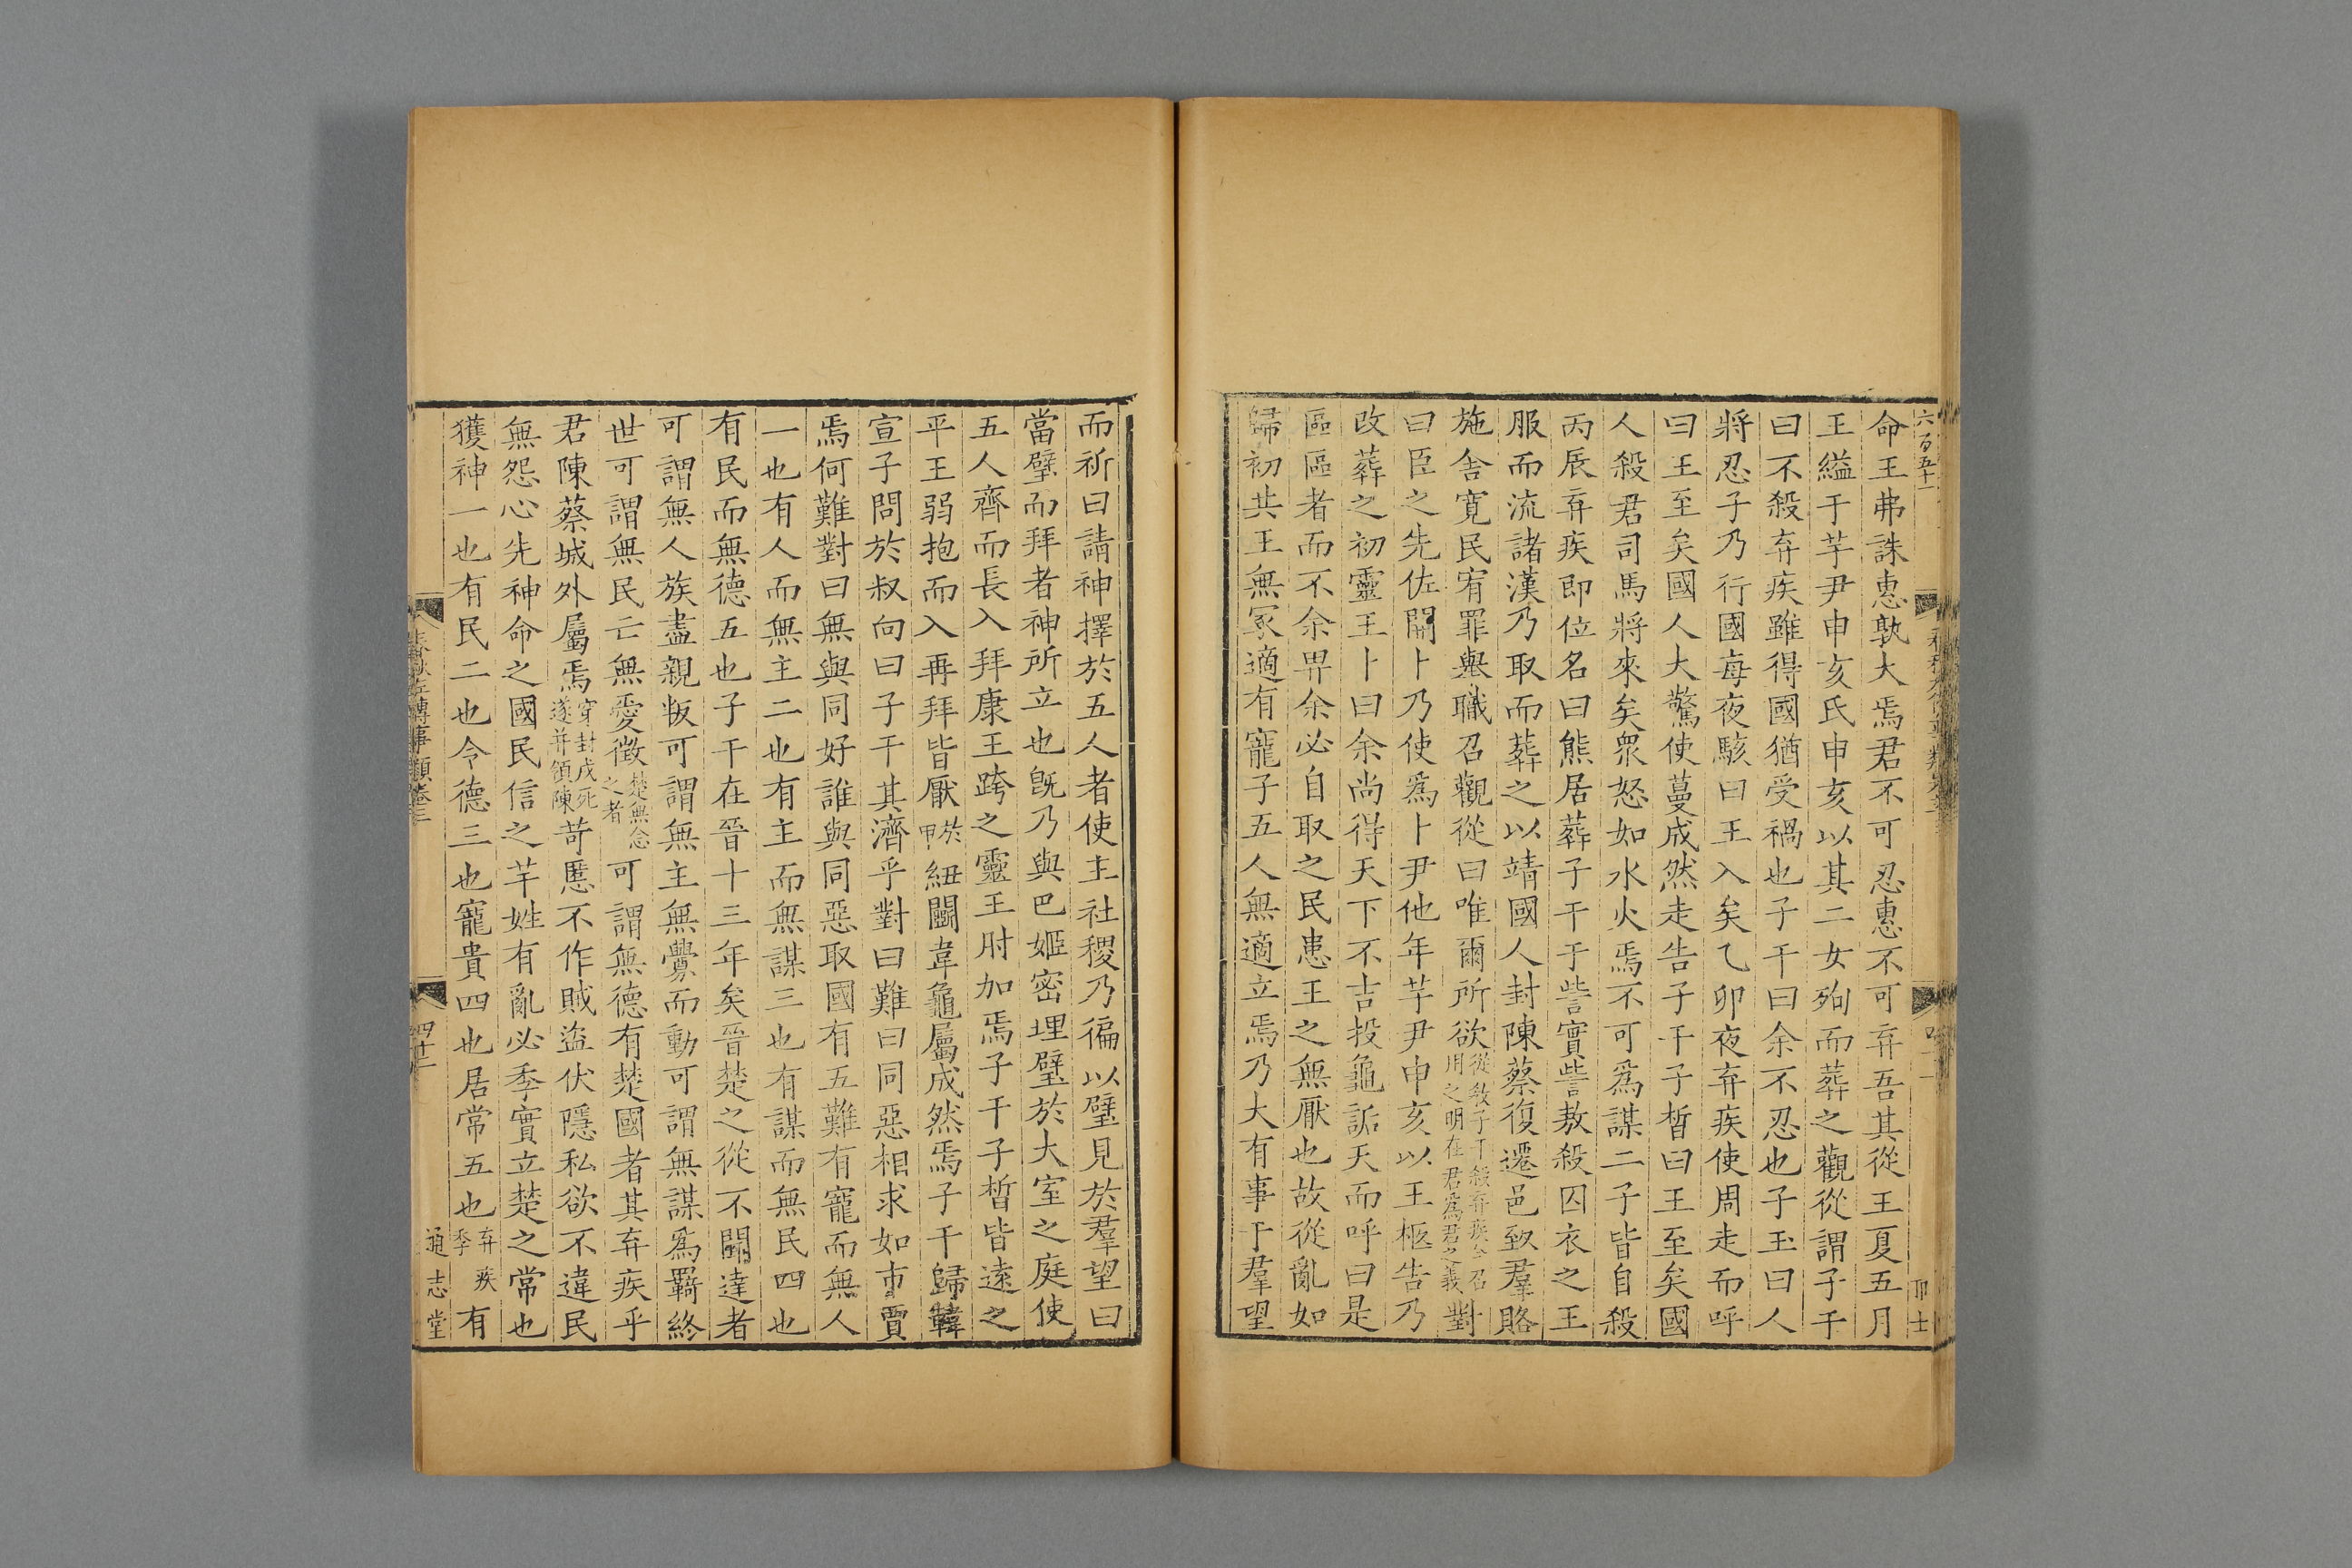 六百五十一
命王弗誅惠孰大焉君不可忍惠不可弃吾其從王夏五月
王縊于芋尹申亥氏申亥以其二女殉而葬之觀從謂子干
曰不殺弃疾雖得國猶受禍也子干曰余不忍也子玉曰人
將忍子乃行國每夜駭曰王入矣乙卯夜弃疾使周走而呼
曰王至矣國人大驚使蔓成然走告子干子晳曰王至矣國
人殺君司馬將來矣衆怒如水火焉不可爲謀二子皆自殺
丙辰弃疾即位名曰熊居葬子干于訾實訾敖殺囚衣之王
服而流諸漢乃取而葬之以靖國人封陳蔡復遷邑致羣賂
施舍寬民宥罪舉職召觀從曰唯爾所欲從教子干殺弃疾今召用之明在君爲君之義對
曰臣之先佐開卜乃使爲卜尹他年芋尹申亥以王柩告乃
改葬之初靈王卜曰余尚得天下不吉投龜詬天而呼曰是
區區者而不余畀余必自取之民患王之無厭也故從亂如
歸初共王無冢適有寵子五人無適立焉乃大有事于羣望
而祈曰請神擇於五人者使主社稷乃徧以璧見於羣望曰
當璧而拜者神所立也旣乃與巴姬密埋璧於大室之庭使
五人齊而長入拜康王跨之靈王肘加焉子干子晳皆遠之
平王弱抱而入再拜皆厭於甲紐鬭韋龜屬成然焉子干歸韓
宣子問於叔向曰子干其濟乎對曰難曰同惡相求如市賈
焉何難對曰無與同好誰與同惡取國有五難有寵而無人
一也有人而無主二也有主而無謀三也有謀而無民四也
有民而無德五也子干在晉十三年矣晉楚之從不聞達者
可謂無人族盡親叛可謂無主無釁而動可謂無謀爲羇終
世可謂無民亡無愛徵楚無念之者可謂無德有楚國者其弃疾乎
君陳蔡城外屬焉穿封戌死遂并領陳苛慝不作賊盜伏隱私欲不違民
無怨心先神命之國民信之芊姓有亂必季實立楚之常也
獲神一也有民二也令德三也寵貴四也居常五也弃疾季有
春秋左傳事類卷三
通志堂